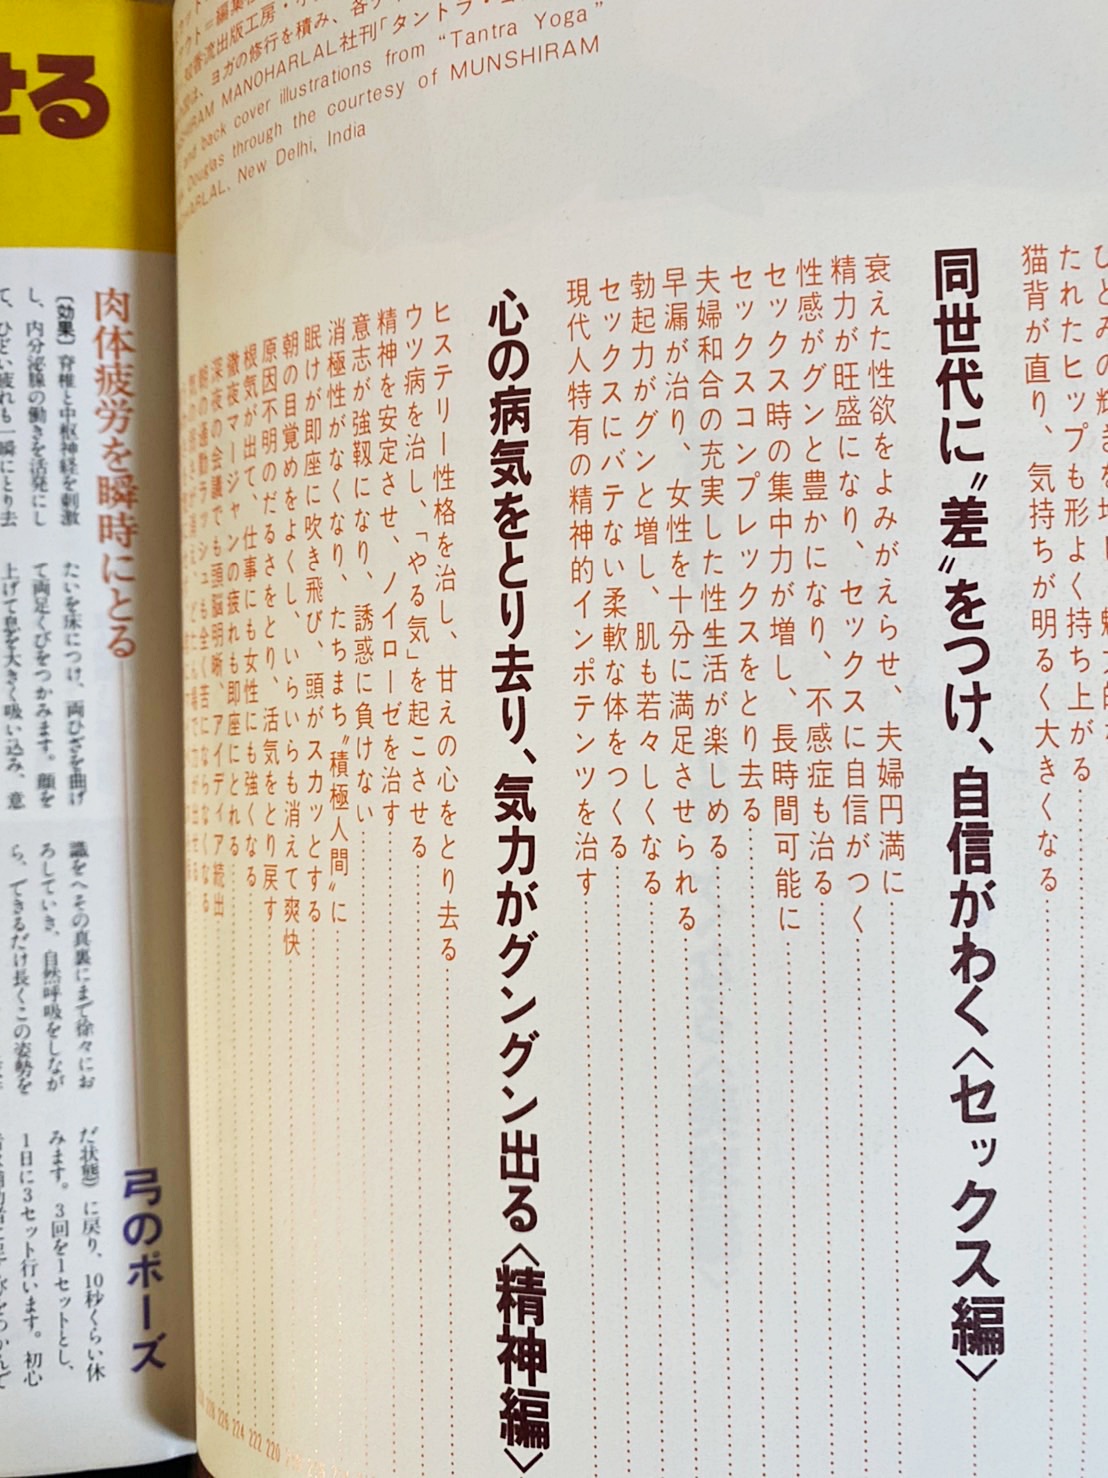 MANOHARLAL社刊「タントラ・
and back cover illustrations from “Tantra Yoga”
Douglas through the courtesy of MUNSHIRAM
New Delhi, India
たれたヒップも形よく持ち上がる
猫背が直り、気持ちが明るく大きくなる
同世代に〝差〟をつけ、自信がわく〈セックス編〉
衰えた性欲をよみがえらせ、夫婦円満に
精力が旺盛になり、セックスに自信がつく
性感がグンと豊かになり、不感症も治る
セックス時の集中力が増し、長時間可能に
セックスコンプレックスをとり去る
夫婦和合の充実した性生活が楽しめる
早漏が治り、女性を十分に満足させられる
勃起力がグンと増し、肌も若々しくなる
セックスにバテない柔軟な体をつくる
現代人特有の精神的インポテンツを治す
心の病気をとり去り、気力がグングン出る〈精神編〉
ヒステリー性格を治し、甘えの心をとり去る
ウツ病を治し、「やる気」を起こさせる
精神を安定させ、ノイローゼを治す
意志が強靱になり、誘惑に負けない
消極性がなくなり、たちまち〝積極人間〟に
眠けが即座に吹き飛び、頭がスカッとする
朝の目覚めをよくし、いらいらも消えて爽快
原因不明のだるさをとり、活気をとり戻す
根気が出て、仕事にも女性にも強くなる
徹夜マージャンの疲れも即座にとれる
深夜の会議でも頭脳明晰、アイディア続出
朝の通勤ラッシュも全く苦にならなくなる
226 224 222 220
せる
肉体疲労を瞬時にとる
弓のポーズ
〔効果〕脊椎と中枢神経を刺激
し、内分泌腺の働きを活発にし
て、ひどい疲れも一瞬にとり去
たいを床につけ、両ひざを曲げ
て両足くびをつかみます。顔を
上げて息を大きく吸い込み、意
識をへその真裏にまで徐々にお
ろしていき、自然呼吸をしなが
ら、できるだけ長くこの姿勢を
だ状態）に戻り、10秒くらい休
みます。3回を1セットとし、
1日に3セット行います。初心